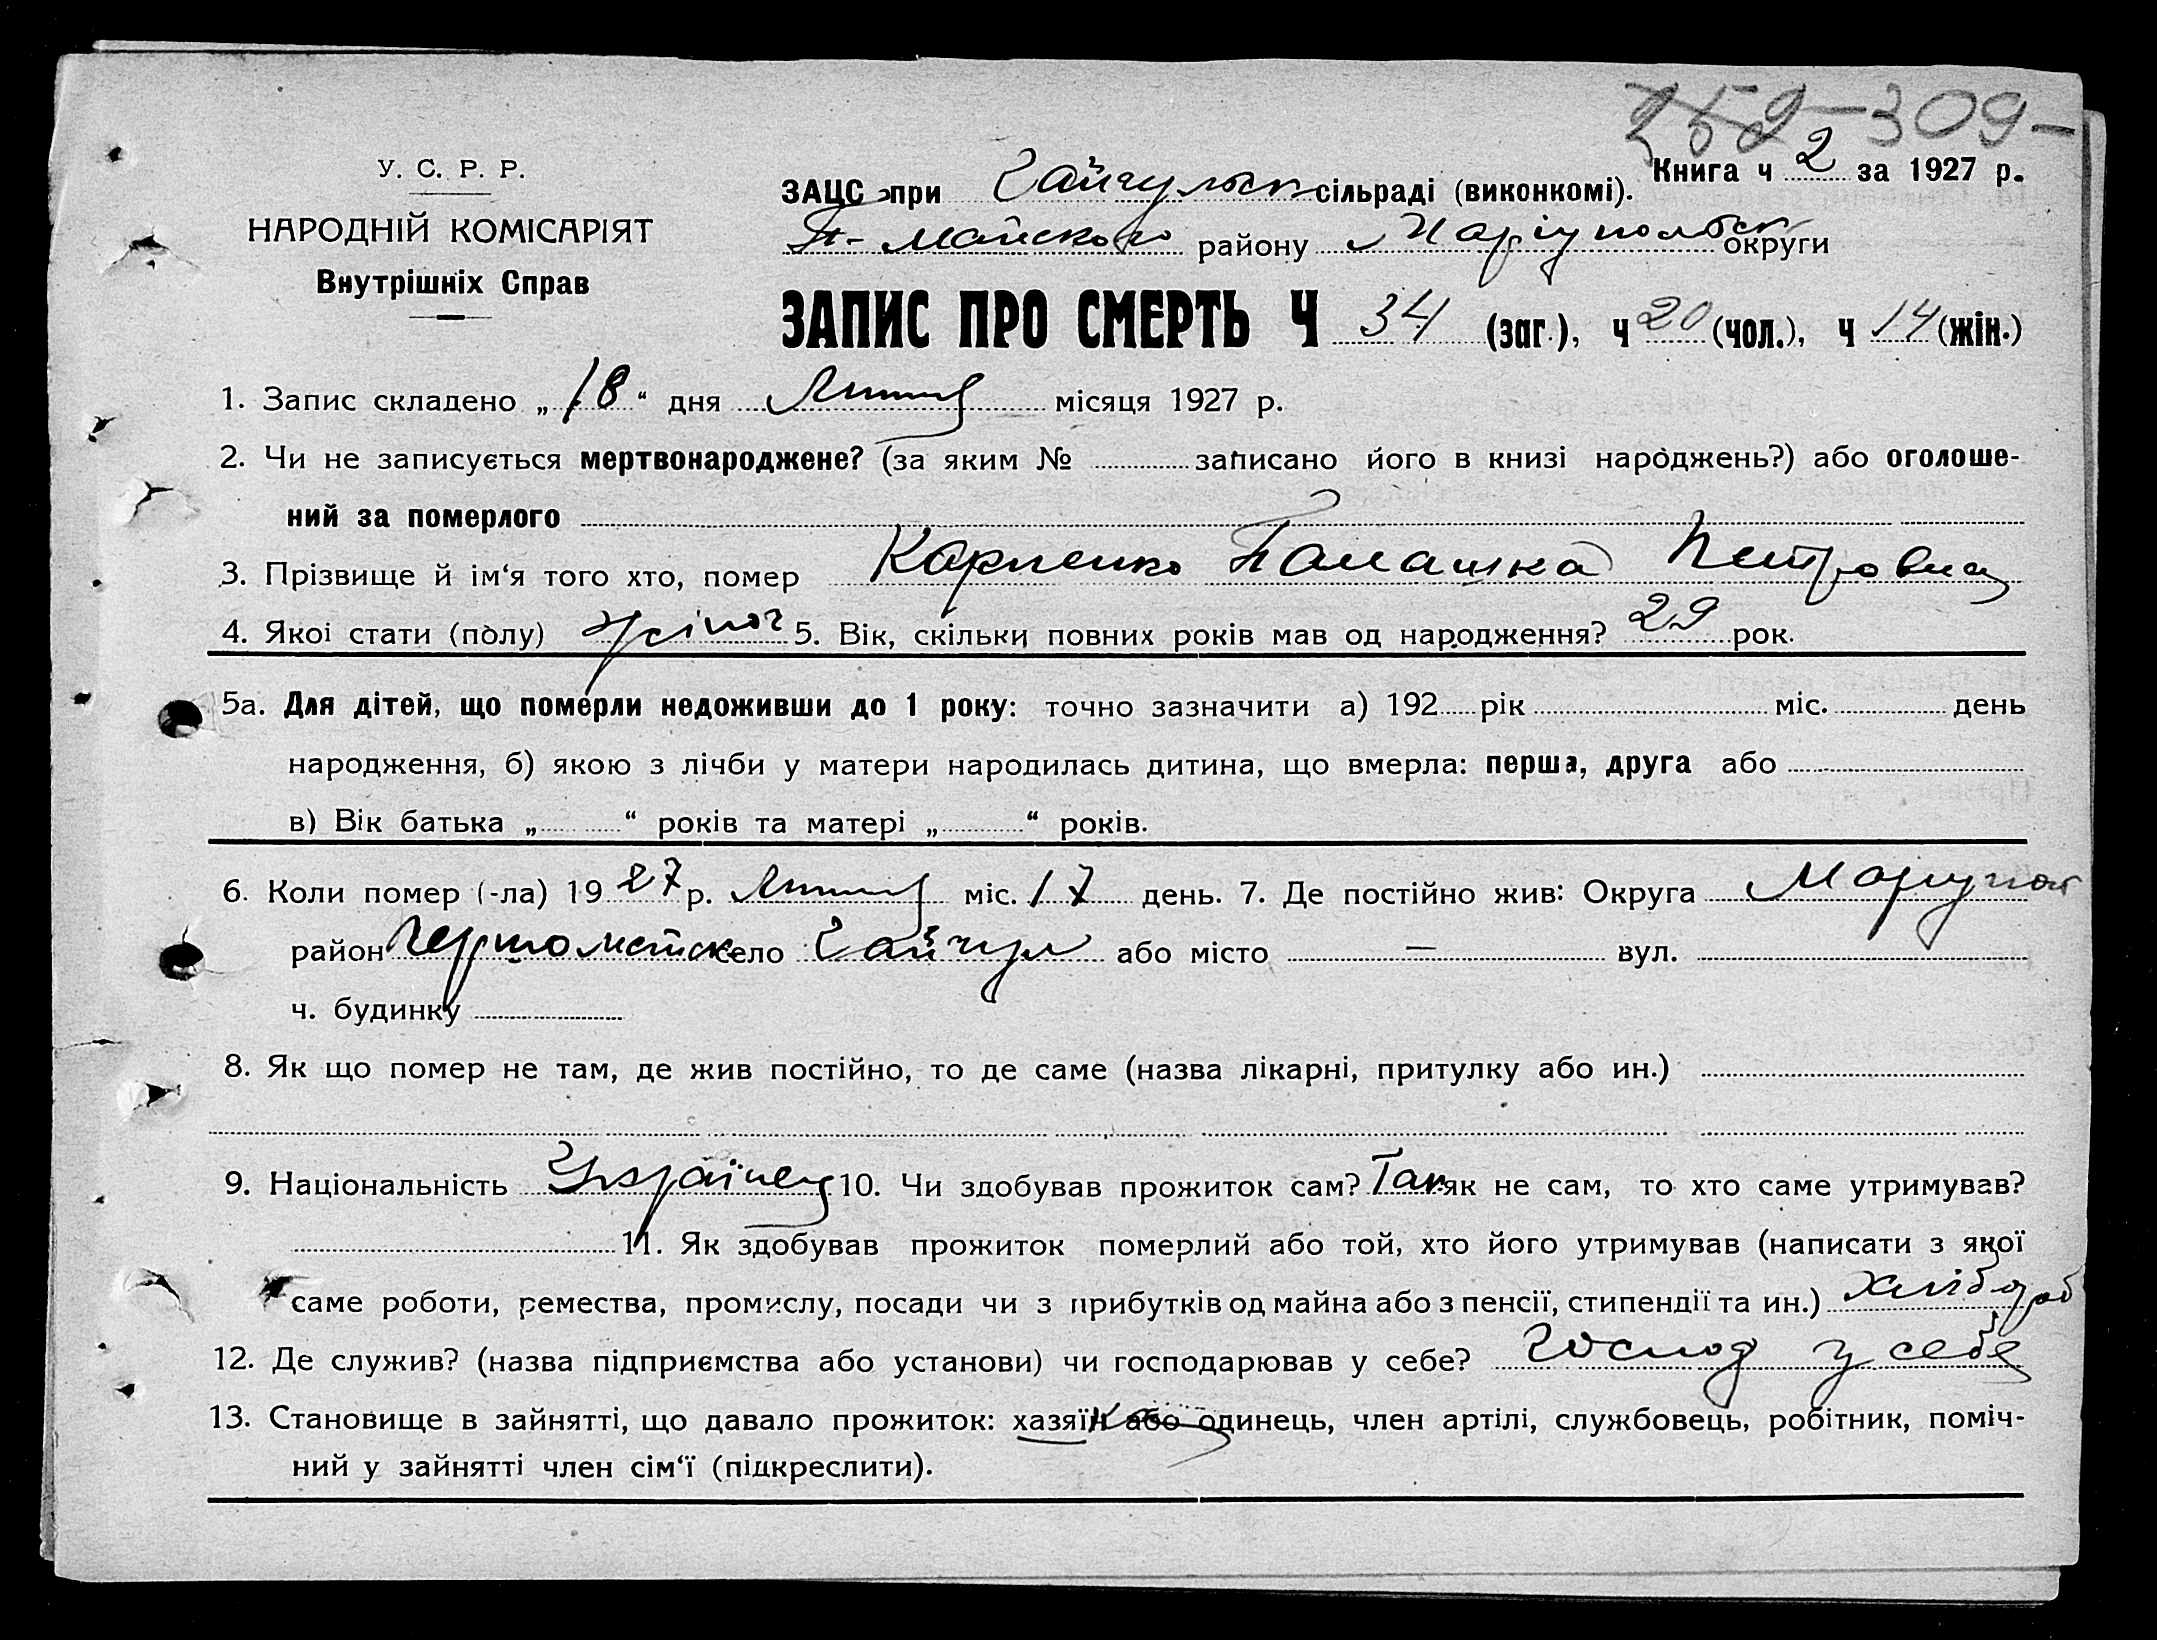 252-309-
У. С. Р. Р.
НАРОДНІЙ КОМІСАРІЯТ
Внутрішніх Справ
Книга ч 2 за 1927 р.
ЗАЦС при Гайчульск сільраді (виконкомі).
П-Майского району Маріупольськ округи
ЗАПИС ПРО СМЕРТЬ Ч 34 (заг.), ч 20 (чол.), ч 14 (жін.)
1. Запис складено „18“ дня Липня місяця 1927 р.
2. Чи не записується мертвонароджене? (за яким № записано його в книзі народжень?) або оголоше-
ний за померлого
3. Прізвище й ім‘я того хто, помер Карпенко Палашка Петровна
4. Якої стати (пòлу) жіноч 5. Вік, скільки повних років мав од народження? 29 рок.
5а. Для дітей, що померли недоживши до 1 року: точно зазначити а) 192 рік міс. день
народження, б) якою з лічби у матери народилась дитина, що вмерла: перша, друга або
в) Вік батька „ “ років та матері „ “ років.
6. Коли помер (-ла) 1927 р. Липня міс. 17 день. 7. Де постійно жив: Округа Маріупол
район село Гайчул або місто — вул.
ч. будинку
8. Як що помер не там, де жив постійно, то де саме (назва лікарні, притулку або ин.)
9. Національність Українец 10. Чи здобував прожиток сам? Так як не сам, то хто саме утримував?
11. Як здобував прожиток померлий або той, хто його утримував (написати з якої
саме роботи, ремества, промислу, посади чи з прибутків од майна або з пенсії, стипендії та ин.) Хлібороб
12. Де служив? (назва підприємства або установи) чи господарював у себе? Господ у себе
13. Становище в зайнятті, що давало прожиток: хазяїн або одинець, член артілі, службовець, робітник, поміч-
ний у зайнятті член сім‘ї (підкреслити).